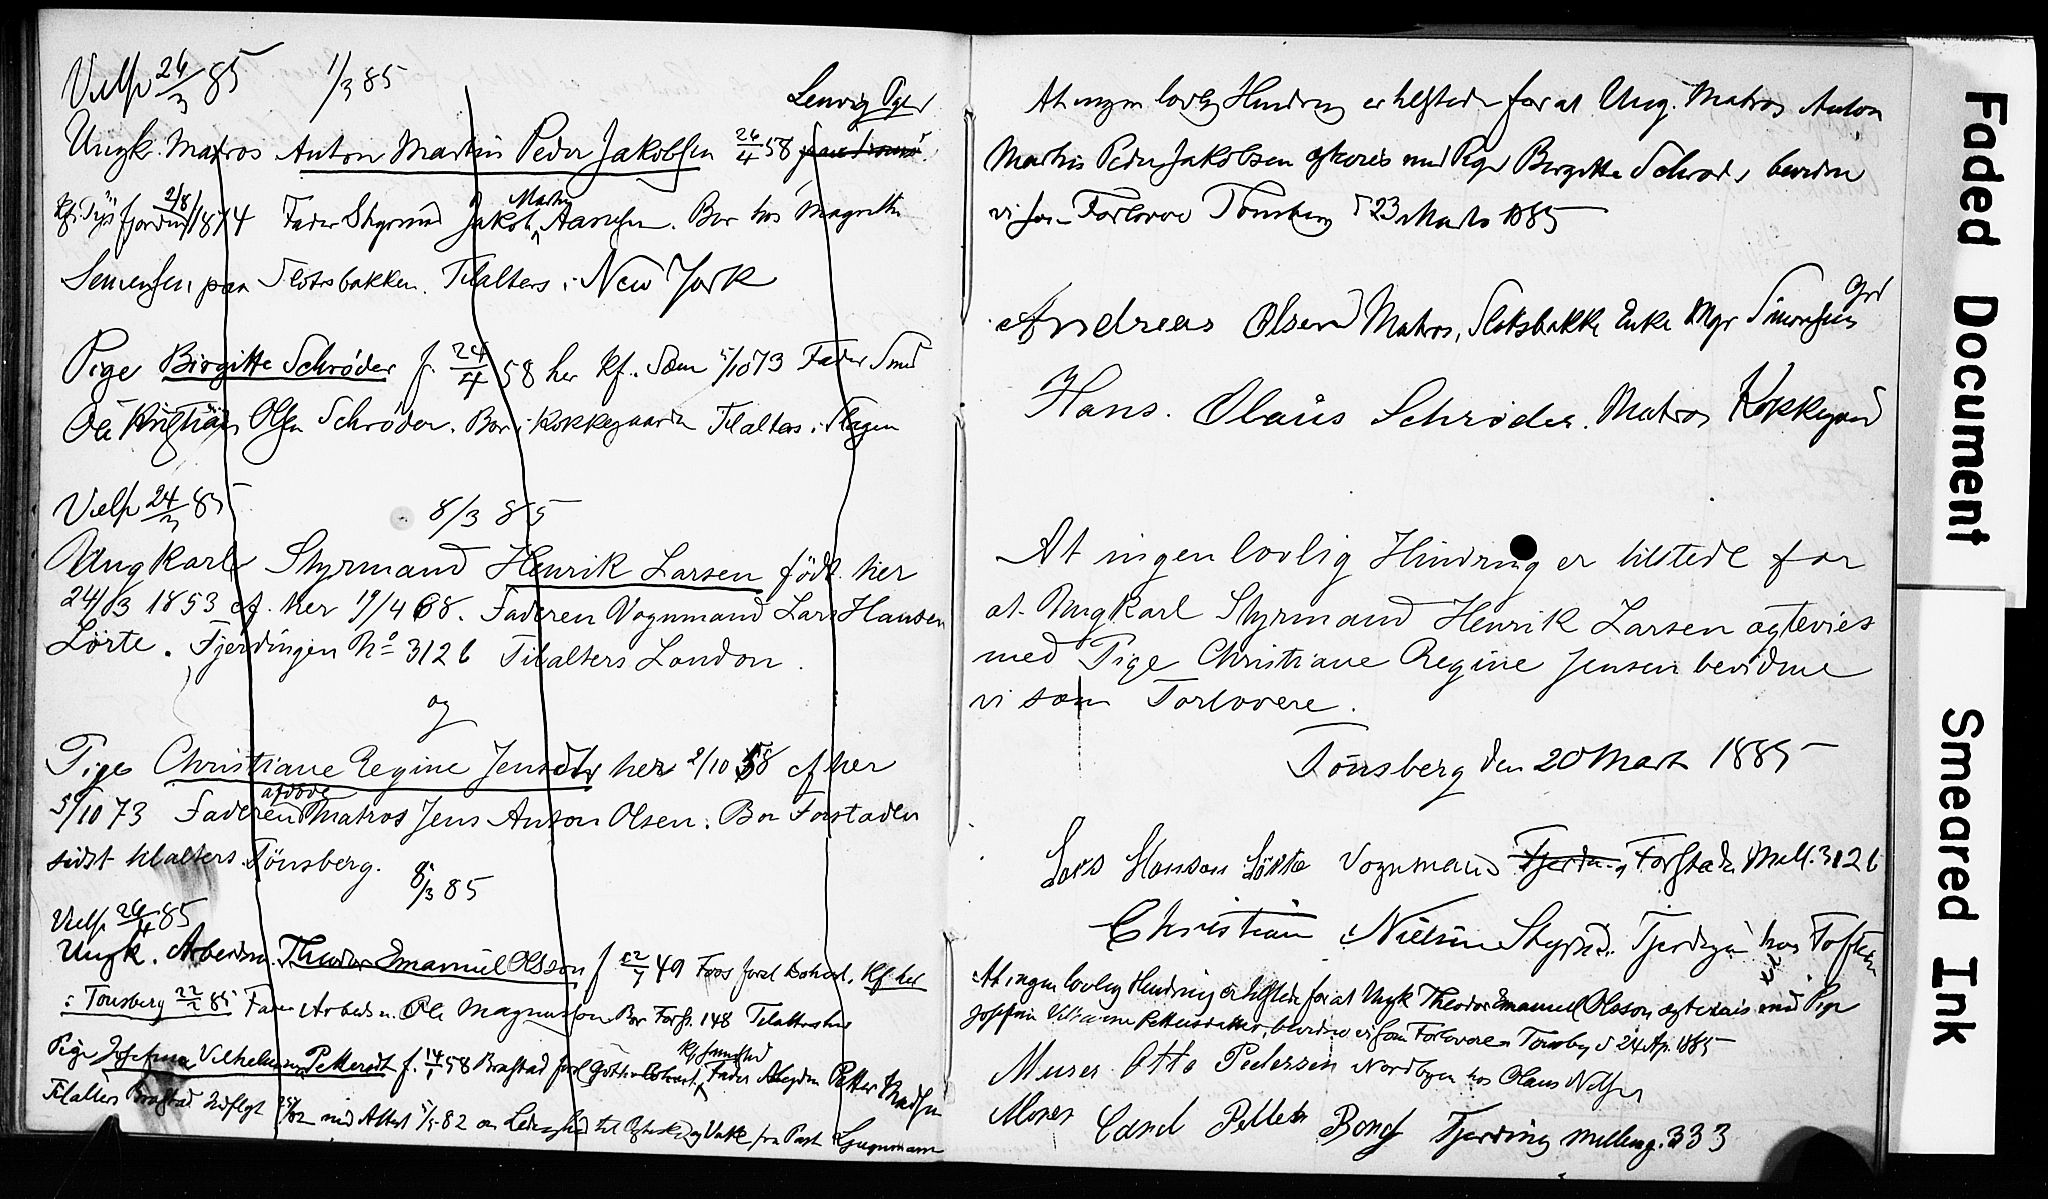 Vielse 26/3 85 1/3 85
Lervig Pgd
Ungk. Matros Anton Martin Peder Jakobsen 26/4 58
2/8 1874 Fader Styrmd Jakob Martin Aanesen. Bor hos Magrethe
Simensen paa Slotsbakken. Tilalters i New York
Pige Birgitte Schrøder f. 24/4 58 her kf. Søm 5/10 73 Fader Smed
Ole Kristian Olsen Schrøder. Bor i Kokkegaarden Tilalters i Slagen
Vielse 24/3 85 8/3 85
Ungkarl Styrmand Henrik Larsen födt her
24/3 1853 cf. her 19/4 68. Faderen Vognmand Lars Hansen
Lörte. Fjerdingen No 312 b Tilalters London.
og
Pige Christiane Regine Jensdtr her 2/10 58 cf her
5/10 73 Faderen afdöde Matros Jens Anton Olsen. Bor Forstaden
sidst tilalters Tönsberg.
8/3 85
Vielse 26/4 85
Ungk. Arbeidsm. Theodor Emanuel Olsson f 22/7 49 Foss Kf her
i Tonsberg 22/2 85 Fader Arbeidsm. Ole Magnusson Bor Forst. 148 Tilalters her
Pige Josefina Vilhelmina Pettersdt f. 14/1 58 Brastad Fader Petter Madsen
Tilalters Brastad Indflyt med Attest 5/5 82 om Ledighed til Ægteskab fra Past Ljungmann
At ingen lovlig Hindring er tilstede for at Ung. Matros Anton
Martin Peder Jakobsen ægtevies med Pige Birgitte Schrøder bevidne
vi som Forlovere Tonsberg d 23 Marts 1885
Andreas Olsen Matros, Slotsbakke Enke Mgr Simensens Grd
Hans. Olaus Schrøder. Matros Kokkegaard
At ingen lovlig Hindring er tilstede for
at Ungkarl Styrmand Henrik Larsen ægtevies
med Pige Christiane Regine Jensen bevidne
vi som Forlovere.
Tönsberg den 20 Marts 1885
Lars Hansen Lörte Vognmand Fjerding Forstaden Mell. 312 b
Christian Nielsen Styrmd. Fjerdingen hos Toften
At ingen lovlig Hindring er tilstede for at Ungk Theodor Emanuel Olsson ægtevies med Pige
Josefine Vilhelmine Pettersdatter, bevidne vi som Forlovere Tonsberg d 24 Ap. 1885
Murer Otto Pedersen Nordbyen hos Olaus Nilsen
Murer Carl Petter Bong Fjerding Mellemg. 333
Faded Document
Smeared Ink